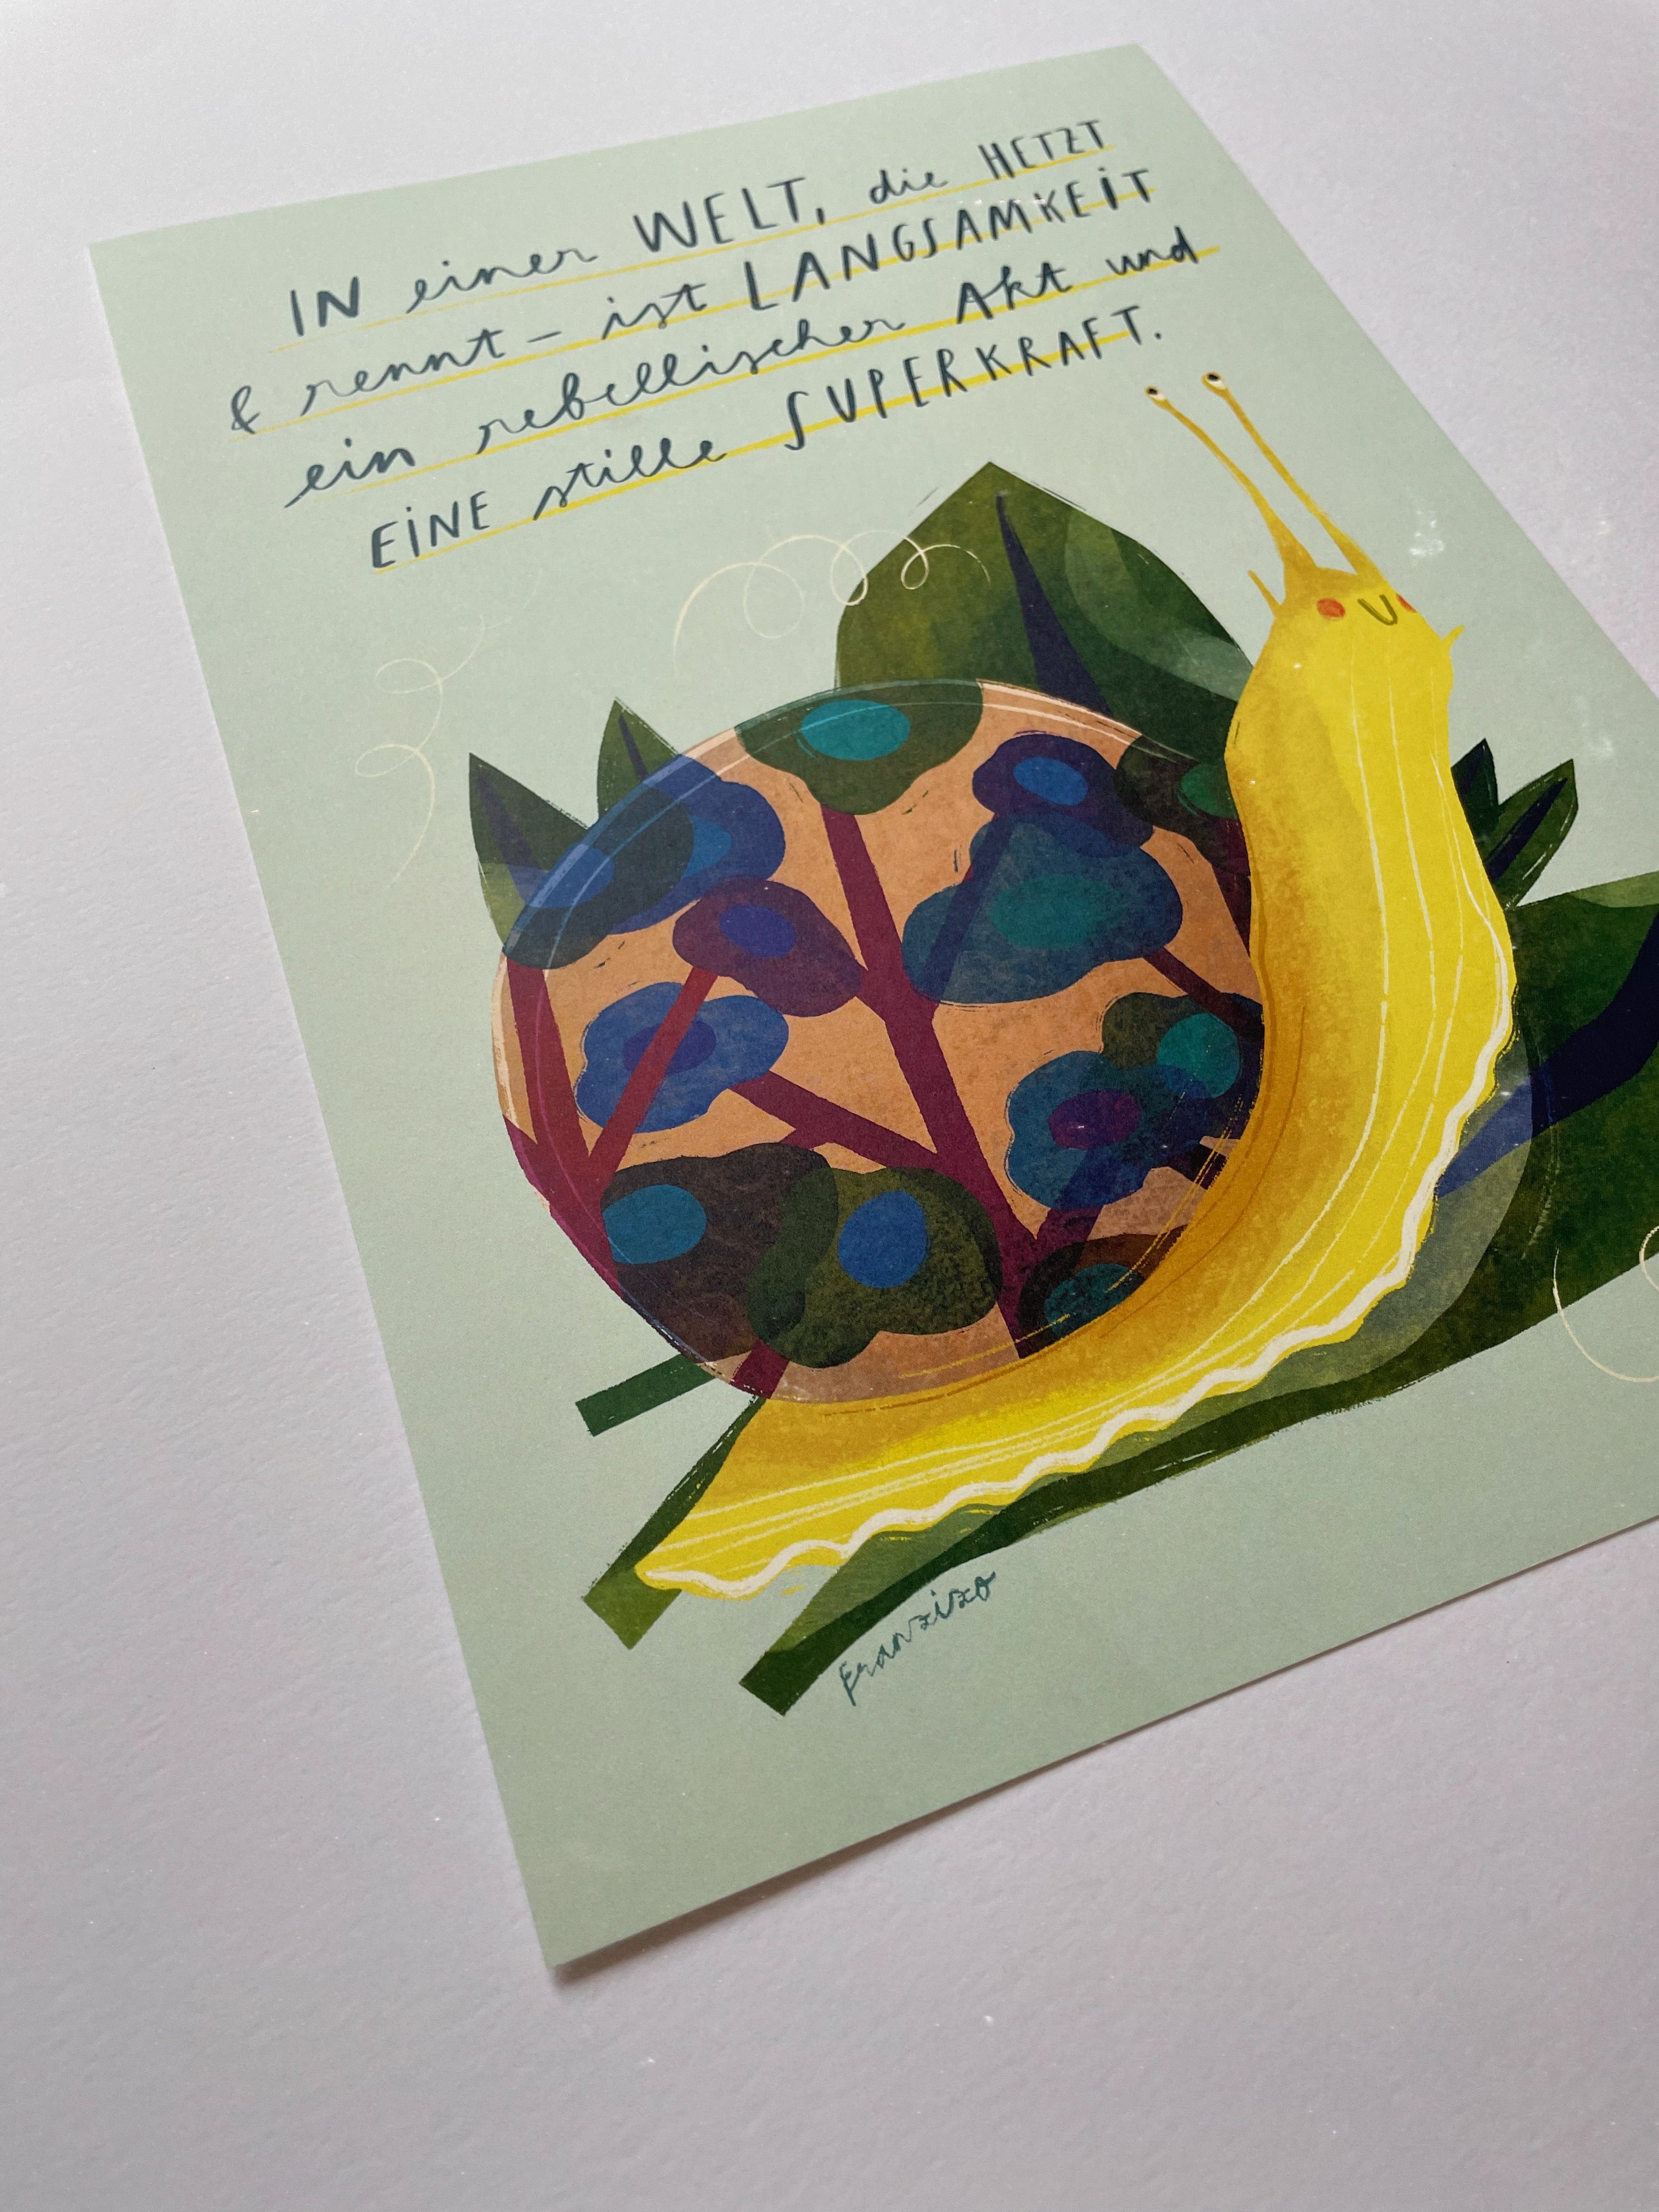 IN einer WELT, die HETZT
& rennt – ist LANGSAMKEIT
ein rebellischer Akt und
EINE stille SUPERKRAFT.
Franzixo